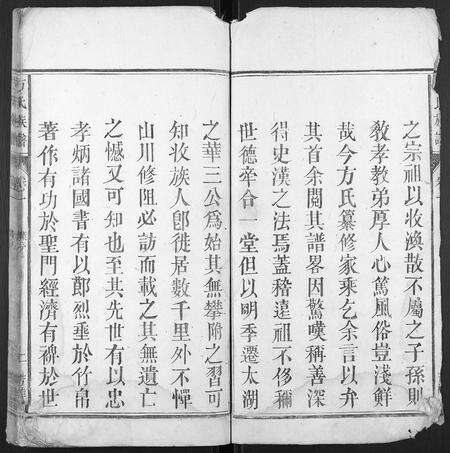 之宗祖以收渙散不屬之子孫則
敎孝教弟厚人心篤風俗豈淺鮮
哉今方氏纂修家乘乞余言以弁
其首余閱其譜畧因驚嘆稱善深
得史漢之法焉蓋稽遠祖不侈稱
世德卒合一堂但以明季遷太湖
之華三公爲始其無攀附之習可
知收族人卽徙居數千里外不憚
山川修阻必訪而載之其無遺亡
之憾又可知也至其先世有以忠
孝炳諸國書有以鄭烈垂於竹帛
著作有功於聖門經濟有裨於世
方氏族譜